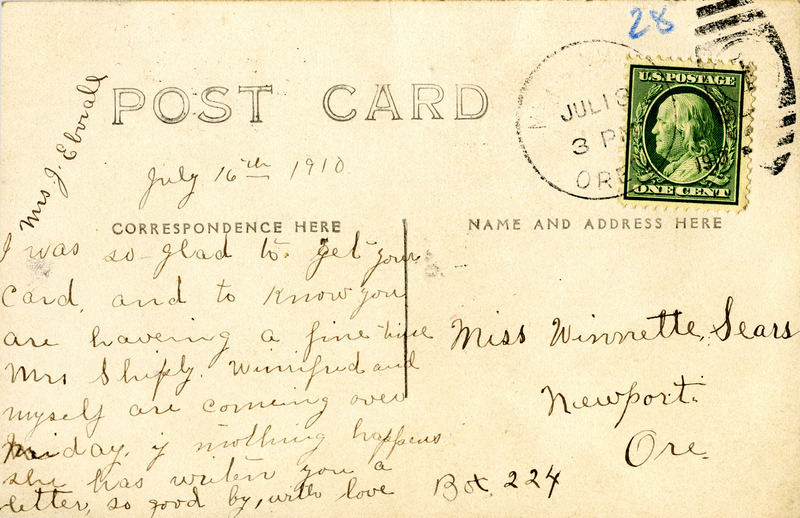 28
U.S. POSTAGE
ONE CENT
JUL 18
3 PM
ORE
1910
POST CARD
Mrs. J. Eborall
July 16th 1910
CORRESPONDENCE HERE
NAME AND ADDRESS HERE
I was so glad to get your
card, and to know you
are haveing a fine time
Mrs Shiply. Winnifred and
myself are comeing over
Friday, if nothing happens
she has writen you a
letter, so good by, with love
Miss Winnette Sears
Newport
Ore.
Box 224